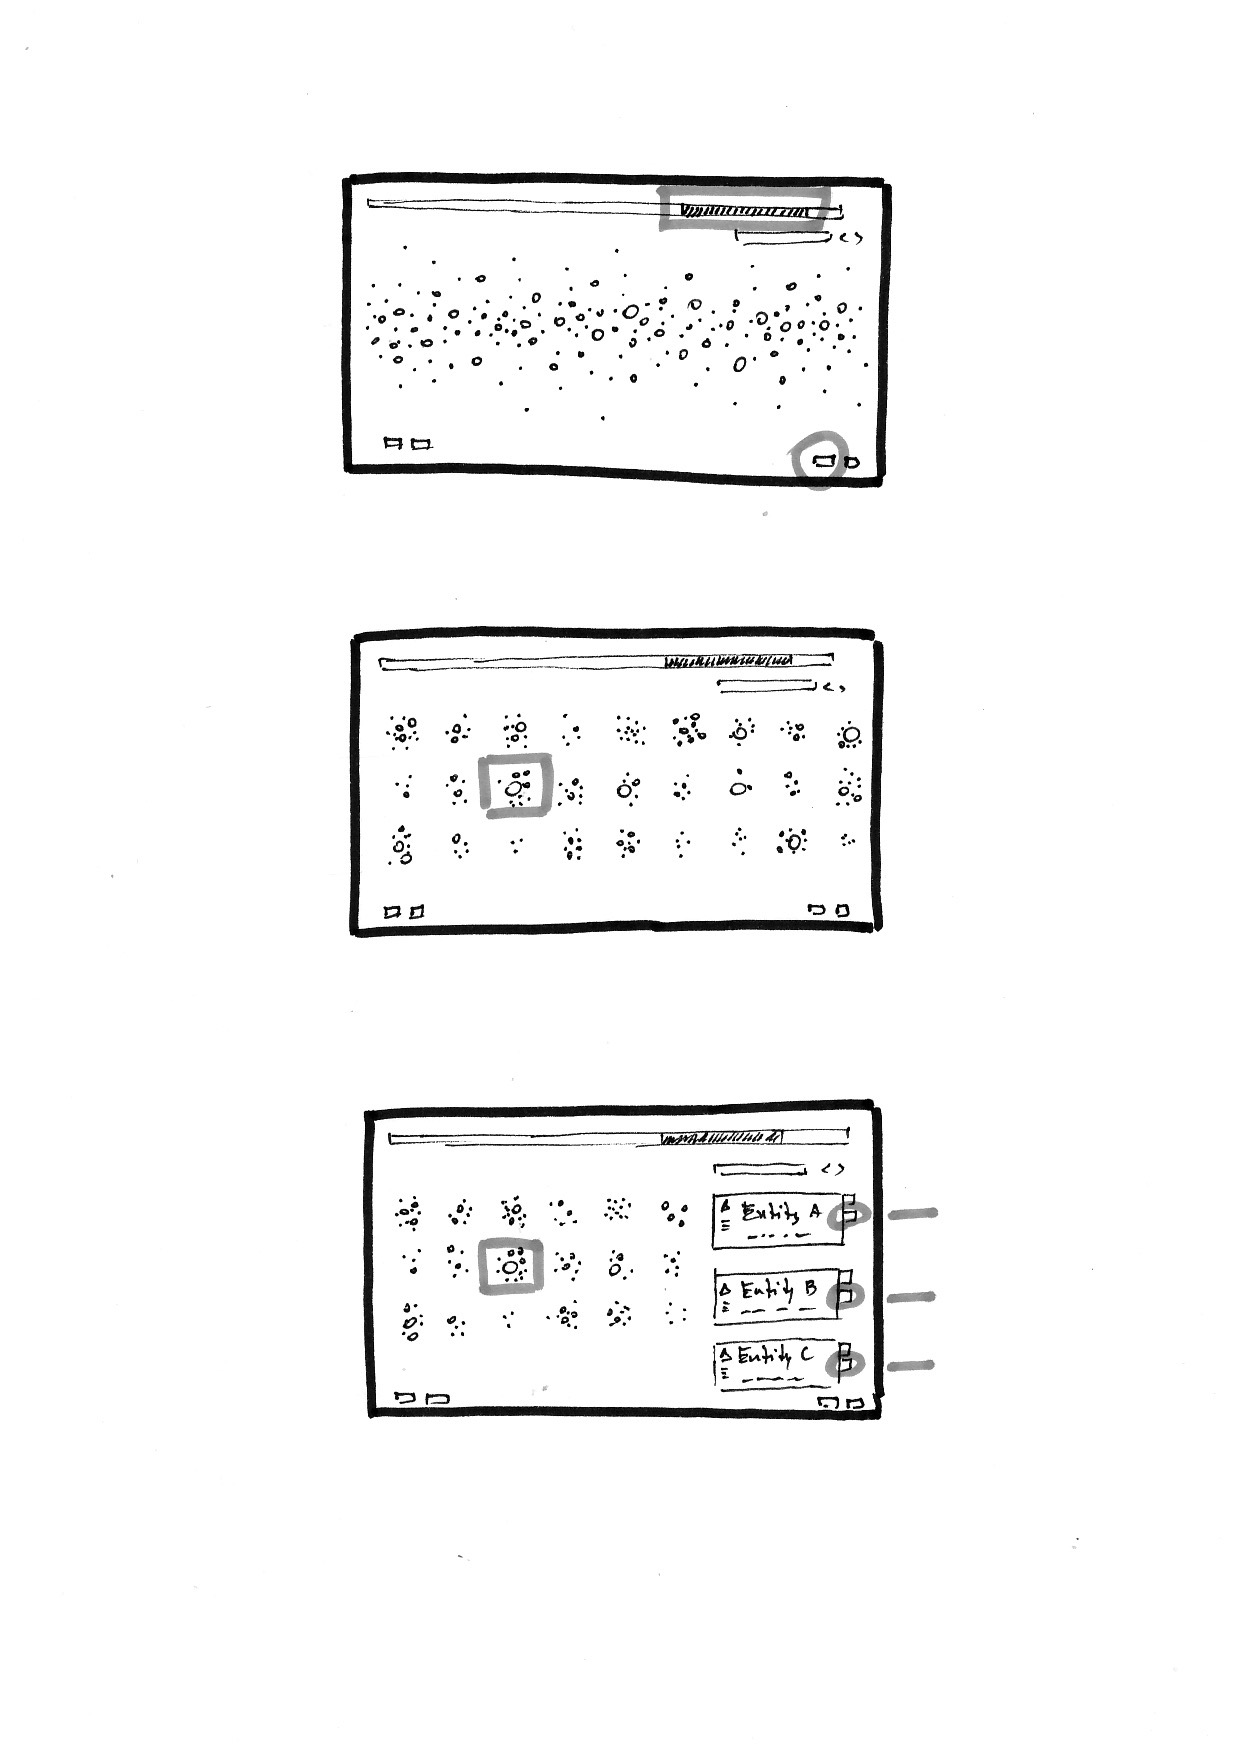 < >
< >
< >
Entity A
Entity B
Entity C